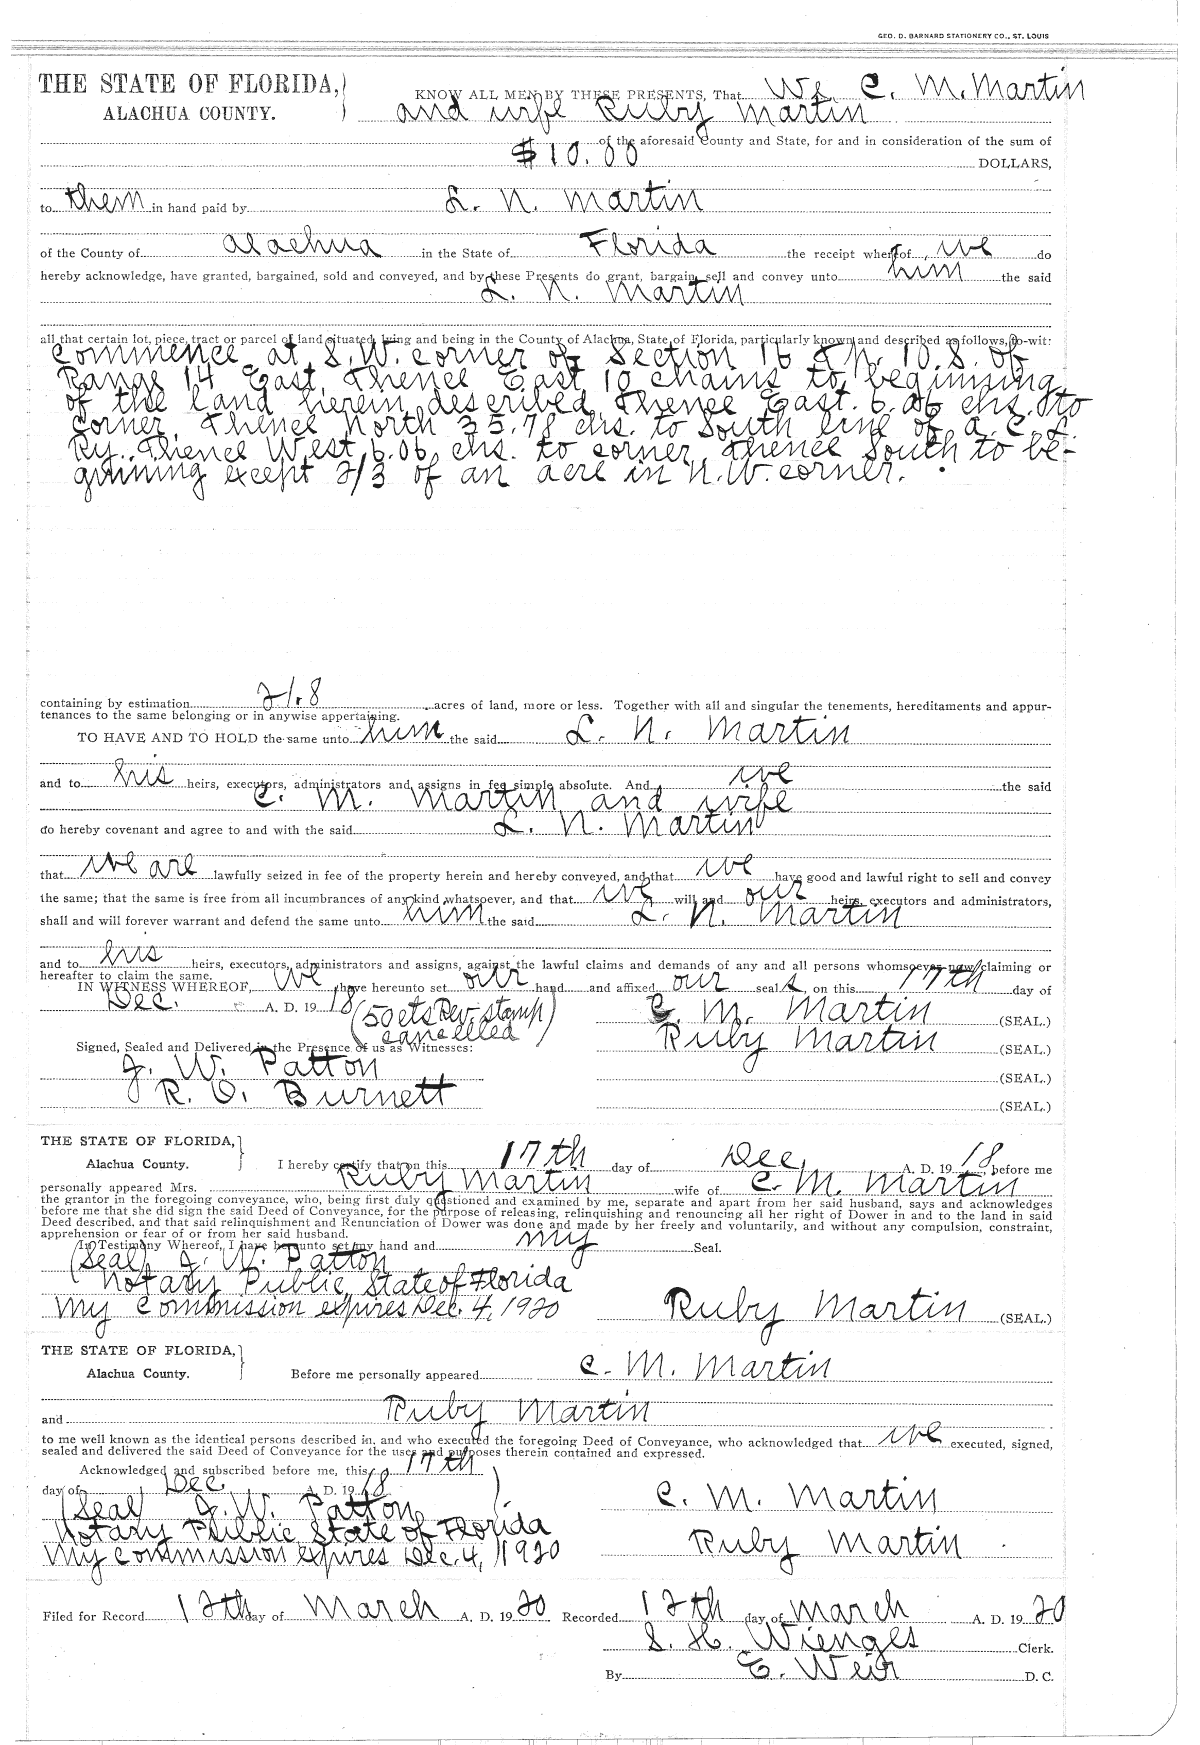 GEO. D. BARNARD STATIONERY CO., ST. LOUIS
THE STATE OF FLORIDA,
ALACHUA COUNTY.
KNOW ALL MEN BY THESE PRESENTS, That We C. M. Martin
and wife Ruby Martin
of the aforesaid County and State, for and in consideration of the sum of
$10.00 DOLLARS,
to them in hand paid by L. N. Martin
of the County of Alachua in the State of Florida the receipt whereof, we do
hereby acknowledge, have granted, bargained, sold and conveyed, and by these Presents do grant, bargain, sell and convey unto him the said
L. N. Martin
all that certain lot, piece, tract or parcel of land situated, lying and being in the County of Alachua, State of Florida, particularly known and described as follows, to-wit:
Commence at S.W. corner of Section 16 Tp. 10. S. of
Range 14 East, thence East 10 chains to beginning
of the land herein described, thence East 6.06 chs. to
corner, thence North 35.78 chs. to South line of A. C. L.
Ry. thence West 6.06 chs. to corner, thence South to be-
ginning except 2/3 of an acre in N.W. corner.
containing by estimation 21.8 acres of land, more or less. Together with all and singular the tenements, hereditaments and appur-
tenances to the same belonging or in anywise appertaining.
TO HAVE AND TO HOLD the same unto him the said L. N. Martin
and to his heirs, executors, administrators and assigns in fee simple absolute. And we the said
C. M. Martin and wife
do hereby covenant and agree to and with the said L. N. Martin
that we are lawfully seized in fee of the property herein and hereby conveyed, and that we have good and lawful right to sell and convey
the same; that the same is free from all incumbrances of any kind whatsoever, and that we will and our heirs, executors and administrators,
shall and will forever warrant and defend the same unto him the said L. N. Martin
and to his heirs, executors, administrators and assigns, against the lawful claims and demands of any and all persons whomsoever now claiming or
hereafter to claim the same.
IN WITNESS WHEREOF, We have hereunto set our hand and affixed our seal s, on this 17th day of
Dec. A. D. 1918 (50 cts Rev. stamp cancelled) C. M. Martin (SEAL.)
Ruby Martin (SEAL.)
Signed, Sealed and Delivered in the Presence of us as Witnesses:
J. W. Patton (SEAL.)
R. O. Burnett (SEAL.)
THE STATE OF FLORIDA,
Alachua County.
I hereby certify that on this 17th day of Dec. A. D. 1918, before me
personally appeared Mrs. Ruby Martin wife of C. M. Martin
the grantor in the foregoing conveyance, who, being first duly questioned and examined by me, separate and apart from her said husband, says and acknowledges
before me that she did sign the said Deed of Conveyance, for the purpose of releasing, relinquishing and renouncing all her right of Dower in and to the land in said
Deed described, and that said relinquishment and Renunciation of Dower was done and made by her freely and voluntarily, and without any compulsion, constraint,
apprehension or fear of or from her said husband.
In Testimony Whereof, I have hereunto set my hand and my Seal.
(Seal) J. W. Patton
Notary Public State of Florida
My Commission expires Dec. 4, 1920 Ruby Martin (SEAL.)
THE STATE OF FLORIDA,
Alachua County.
Before me personally appeared C. M. Martin
and Ruby Martin
to me well known as the identical persons described in, and who executed the foregoing Deed of Conveyance, who acknowledged that we executed, signed,
sealed and delivered the said Deed of Conveyance for the uses and purposes therein contained and expressed.
Acknowledged and subscribed before me, this 17th
day of Dec. A. D. 1918
(Seal) J. W. Patton C. M. Martin
Notary Public State of Florida
My commission expires Dec. 4, 1920 Ruby Martin
Filed for Record 12th day of March A. D. 1920 Recorded 12th day of March A. D. 1920
S. H. Wienges Clerk.
By E. Weir D. C.